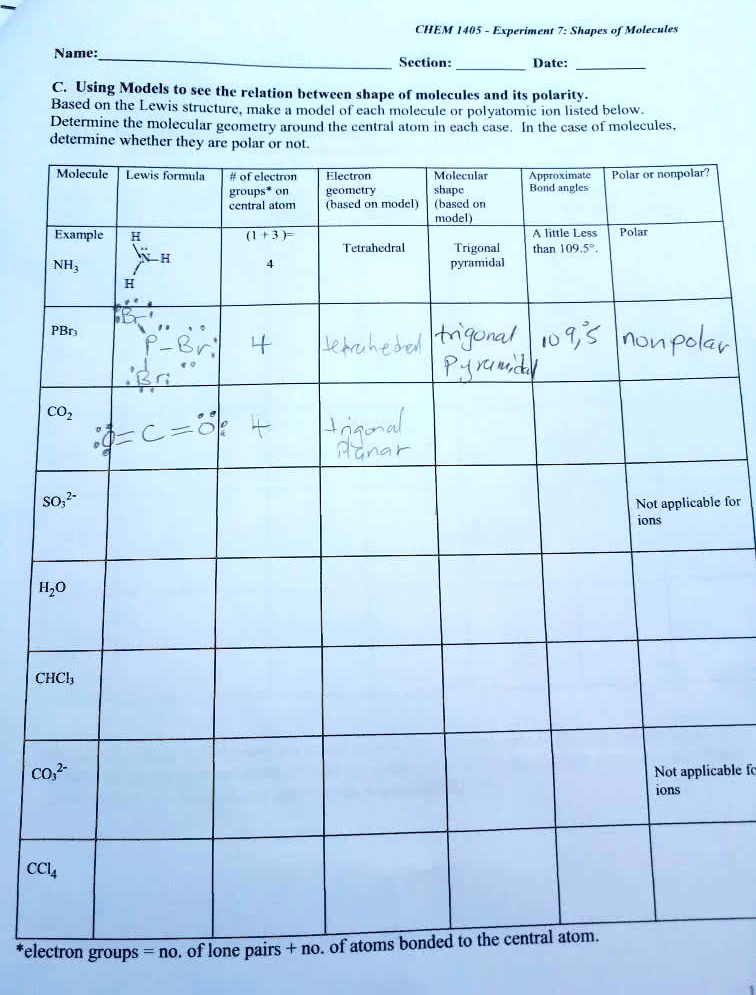 CHEM 1405 - Experiment 7: Shapes of Molecules
Name:
Section:
Date:
C. Using Models to see the relation between shape of molecules and its polarity.
Based on the Lewis structure, make a model of each molecule or polyatomic ion listed below.
Determine the molecular geometry around the central atom in each case. In the case of molecules,
determine whether they are polar or not.
Molecule
Lewis formula
# of electron
groups* on
central atom
Electron
geometry
(based on model)
Molecular
shape
(based on
model)
Approximate
Bond angles
Polar or nonpolar?
Example
NH₃
H
N–H
H
(1 + 3 )=
4
Tetrahedral
Trigonal
pyramidal
A little Less
than 109.5°.
Polar
PBr₃
Br
P–Br
Br
4
tetrahedral
trigonal
pyramidal
109.5
nonpolar
CO₂
O=C=O
4
trigonal
planar
SO₃²⁻
Not applicable for
ions
H₂O
CHCl₃
CO₃²⁻
Not applicable fo
ions
CCl₄
*electron groups = no. of lone pairs + no. of atoms bonded to the central atom.